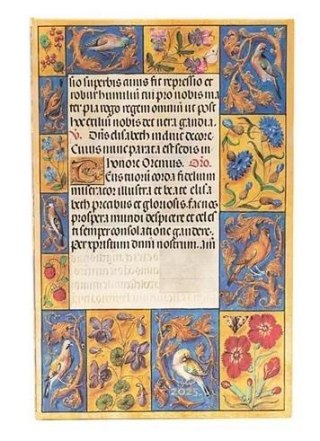 sio superbis cuius fit repressio et
robur humilium tu pro nobis ma
ter pia rogo regem omnium ut post
hoc exilium nobis det vera gaudia.
V. Dña elisabeth induit decore
Cuius nunc parata est sedis in
honore Oremus. Orõ.
Tuorum corda fidelium
miserator illustra et beate elisa
beth precibus et gloriosis fac nos
prospera mundi despicere et celes
ti semper consolatione gaudere.
Per xpristum dnm nostrum. am
2025